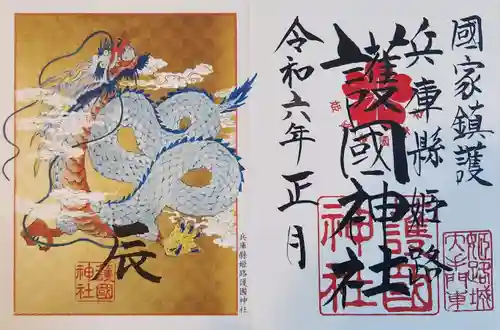 國家鎮護
兵庫縣姫路
護國神社
令和六年正月
護國神社
姫路城
大手門東
辰
兵庫縣姫路護國神社
護國神社